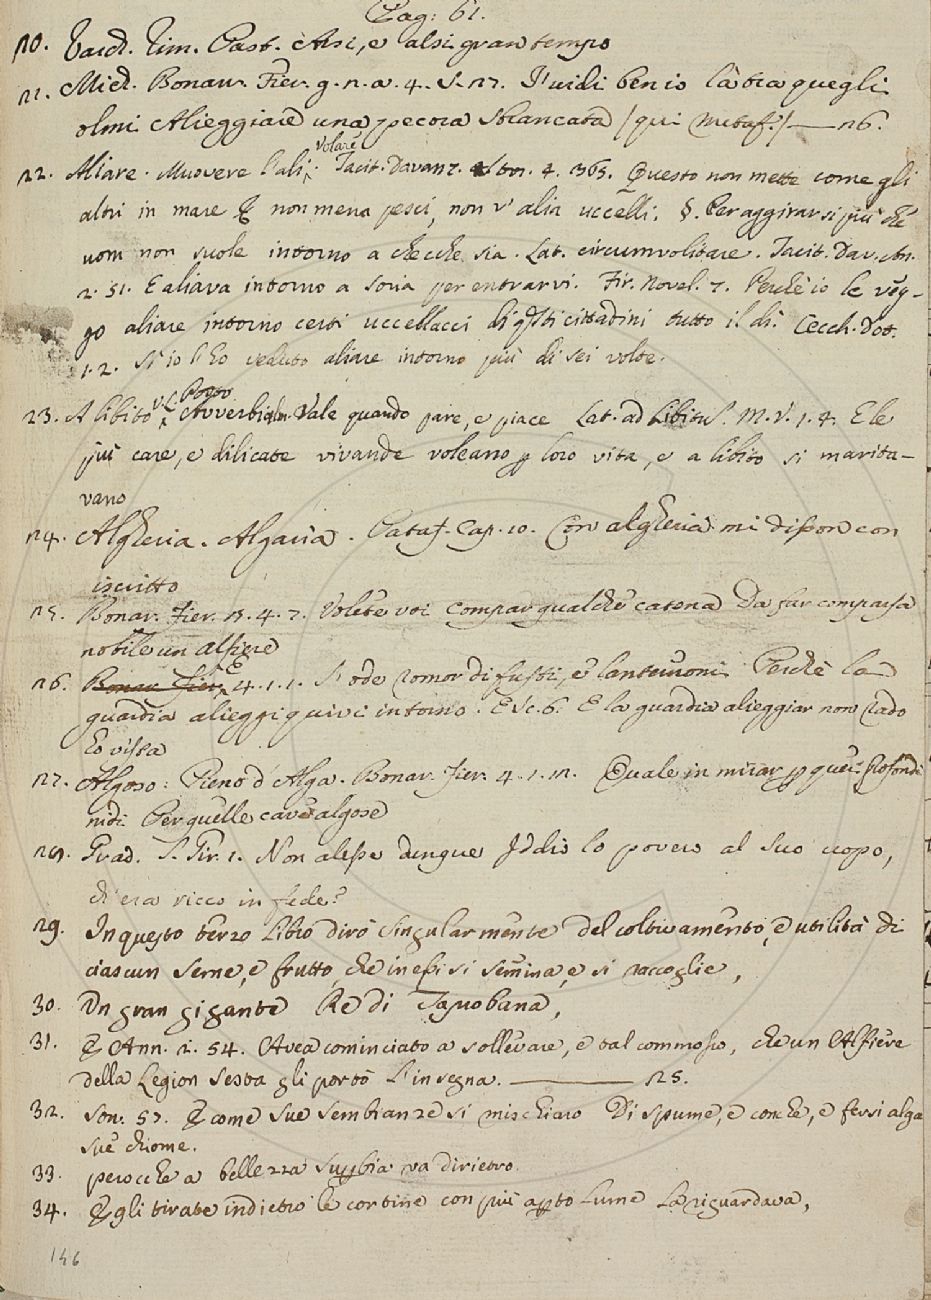 Pag: 61.
20. Vard. Rim. Past. Arsi, e alsi gran tempo
21. Mich. Bonarr. Fier. g. 2. a. 4. S. 27. I' vidi ben io là tra quegli
olmi Alieggiare una pecora sbrancata / qui metaf. / — 26.
22. Aliare. Muovere l'ali; volare Tacit. Davanz. Stor. 4. 365. Questo non mette come gli
altri in mare & non mena pesci, non v'alia uccelli. §. Per aggirarsi più ch'
uom non suole intorno a checche sia. Lat. circumvolitare. Tacit. Dav. An.
2. 51. E aliava intorno a Soria per entrarvi. Fir. Novel. 7. Perchè io le veg-
go aliare intorno certi uccellacci di q̃sti cittadini tutto il dì. Cecch. Dot.
1. 2. Sì io l'ho veduto aliare intorno più di sei volte.
23. A libito V. L. Posto Avverbialm. Vale quando pare, e piace Lat. ad libitu. M. V. 1. 4. E le
più care, e dilicate vivande voleano p loro vita, e a libito si marita-
vano
24. Algheria. Algaria. Pataf. Cap. 10. Con algheria mi dispon con
iscritto
25. Bonar. Fier. 3. 4. 7. Volete voi compar qualche catena Da far comparsa
nobile un alfiere
26. Bonar. Fier. E 4. 1. 1. S'ode romor di fusti, e lanternoni Perchè la
guardia alieggi quivi intorno. E Sc. 6. E la guardia alieggiar non rado
ho vista
27. Algoso: Pieno d'Alga. Bonar. Fier. 4. 1. 12. Quale in mirar p quei profondi
nidi Per quelle cave algose
28. Grad. S. Gir. 1. Non alesse dunque Iddio lo povero al suo uopo,
ch'era ricco in fede?
29. In questo terzo Libro dirò singularmente del coltivamento, e utilità di
ciascun seme, e frutto, che in essi si semina, e si raccoglie,
30. Un gran gigante Re di Taprobana,
31. & Ann. 1. 54. Avea cominciato a sollevare, e tal commosso, che un Alfiere
della Legion sesta gli portò l'insegna. — 25.
32. son. 57. & come sue sembianze si mischiaro Di spume, e conche, e fersi alga
sue chiome.
33. perocchè a bellezza supbia va dirietro.
34. & gli tirate indietro le cortine con più apto lume La riguardava,
146